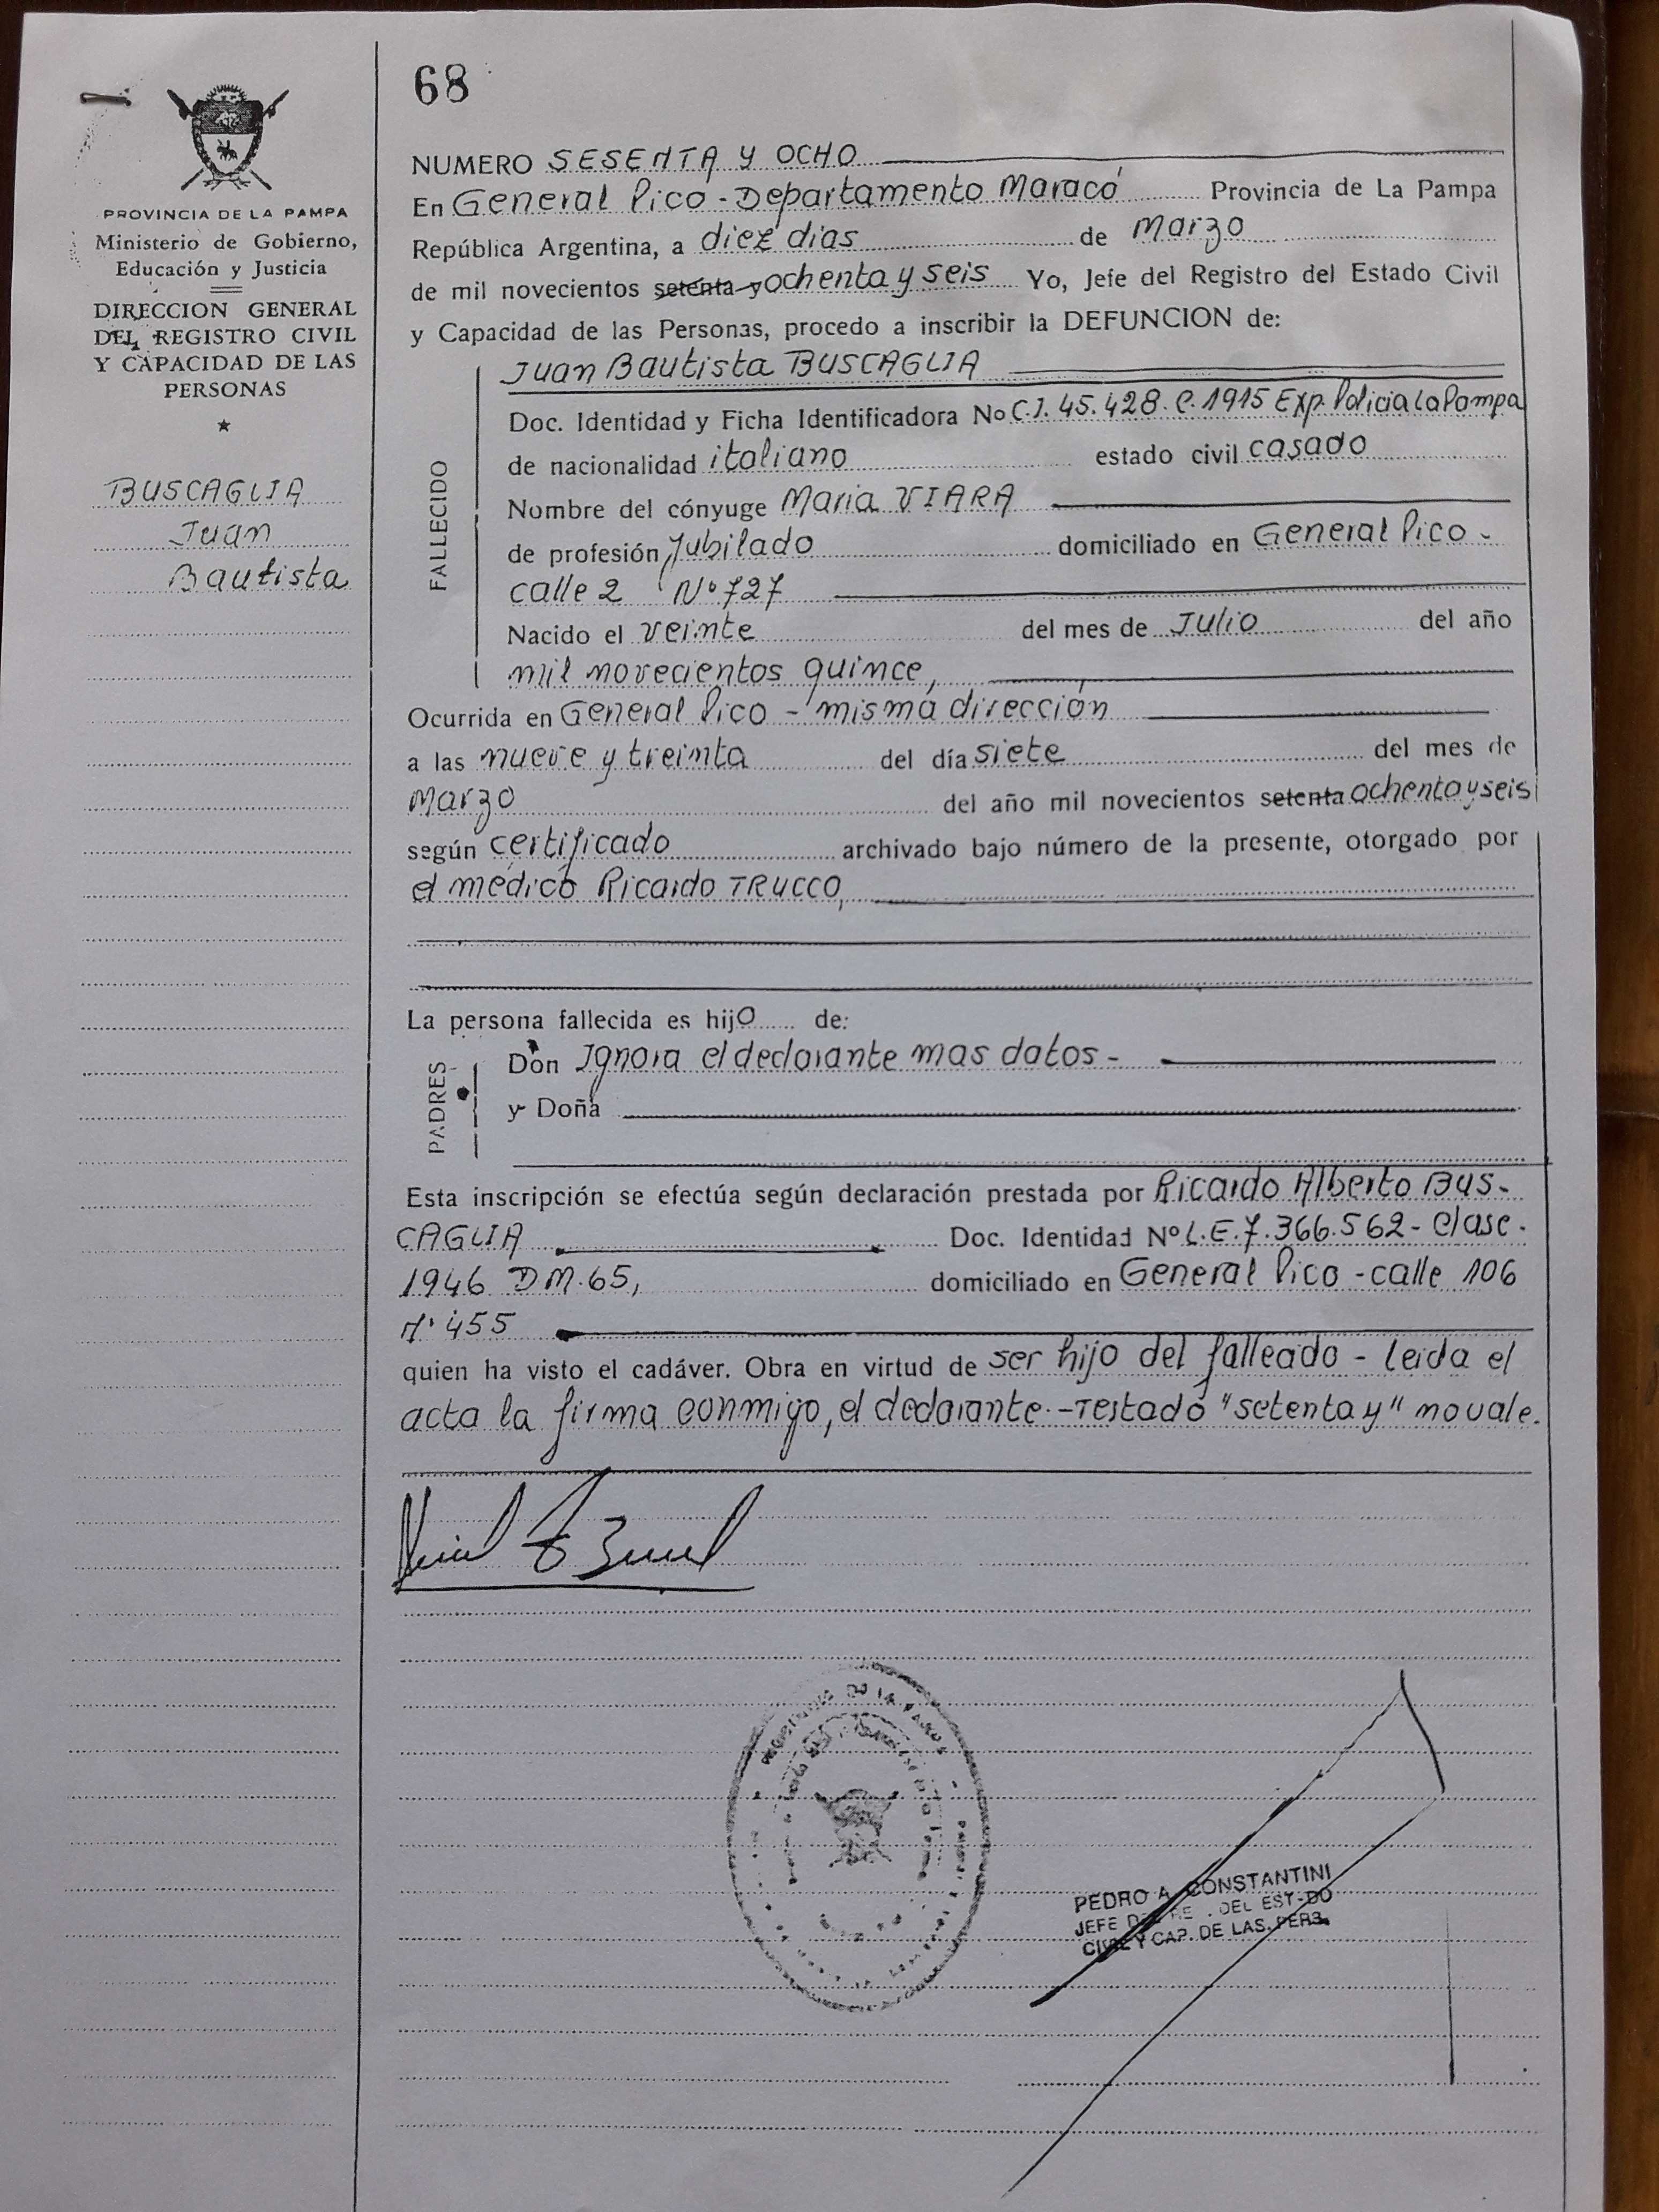 68
PROVINCIA DE LA PAMPA
Ministerio de Gobierno,
Educación y Justicia
DIRECCION GENERAL
DEL REGISTRO CIVIL
Y CAPACIDAD DE LAS
PERSONAS
BUSCAGLIA
Juan
Bautista
NUMERO SESENTA Y OCHO
En General Pico - Departamento Maracó Provincia de La Pampa
República Argentina, a diez dias de Marzo
de mil novecientos setenta y ochenta y seis Yo, Jefe del Registro del Estado Civil
y Capacidad de las Personas, procedo a inscribir la DEFUNCION de:
FALLECIDO
Juan Bautista BUSCAGLIA
Doc. Identidad y Ficha Identificadora No C.I. 45.428. C. 1915 Exp. Policia La Pampa
de nacionalidad italiano estado civil casado
Nombre del cónyuge Maria VIARA
de profesión Jubilado domiciliado en General Pico -
calle 2 Nº 727
Nacido el veinte del mes de Julio del año
mil novecientos quince,
Ocurrida en General Pico - misma dirección
a las nueve y treinta del día siete del mes de
Marzo del año mil novecientos setenta ochenta y seis
según certificado archivado bajo número de la presente, otorgado por
el médico Ricardo TRUCCO,
La persona fallecida es hijo de:
PADRES
Don Ignora el declarante mas datos -
y Doña
Esta inscripción se efectúa según declaración prestada por Ricardo Alberto BUS-
CAGLIA Doc. Identidad Nº L.E. 7.366.562 - clase
1946 D.M. 65, domiciliado en General Pico - calle 106
Nº 455
quien ha visto el cadáver. Obra en virtud de ser hijo del fallecido - Leida el
acta la firma conmigo, el declarante. - Testado "setenta y" no vale.
PEDRO A. CONSTANTINI
JEFE DEL EST-DO
CIVIL Y CAP. DE LAS PERS.